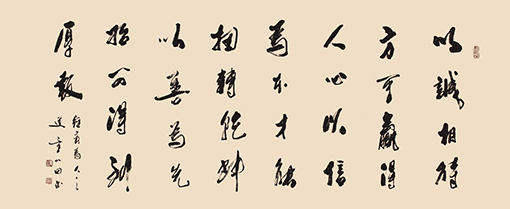 以誠相待
方可贏得
人心以信
為本才能
扭轉乾坤
以善為先
始得到
厚報